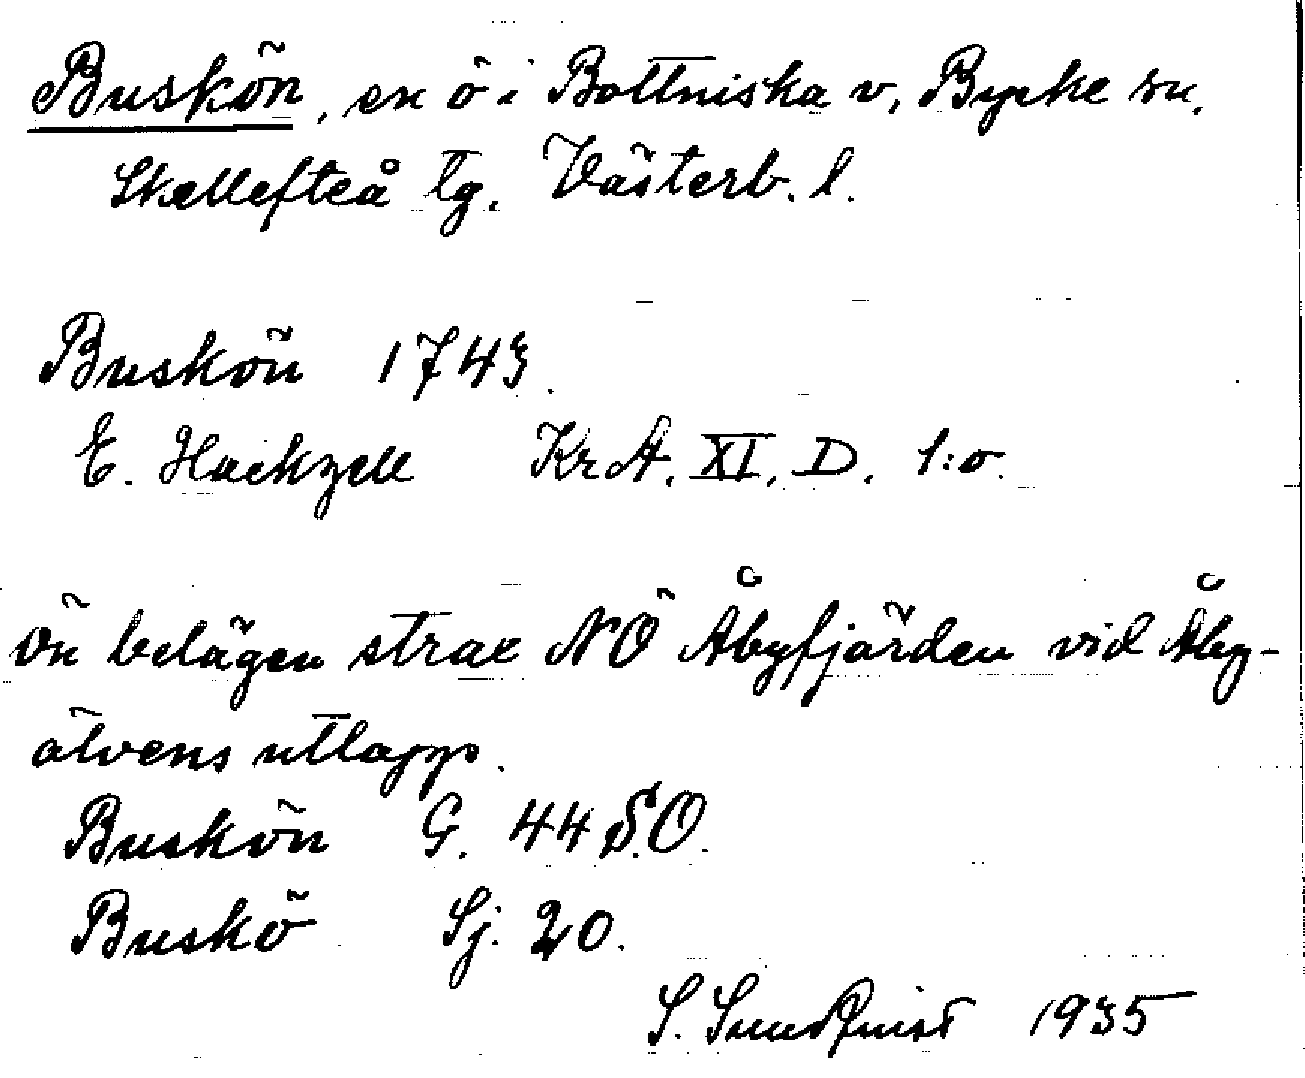 Buskön, en ö i Bottniska v, Byske sn.
Skellefteå tg. Västerb. l.
Buskön 1743.
E. Hackzell KrA. XI. D. 1:o.
Ön belägen strax NÖ Åbyfjärden vid Åby-
älvens utlopp.
Buskön G. 44 S.O.
Buskö Sj. 20.
S. Sundqvist 1935